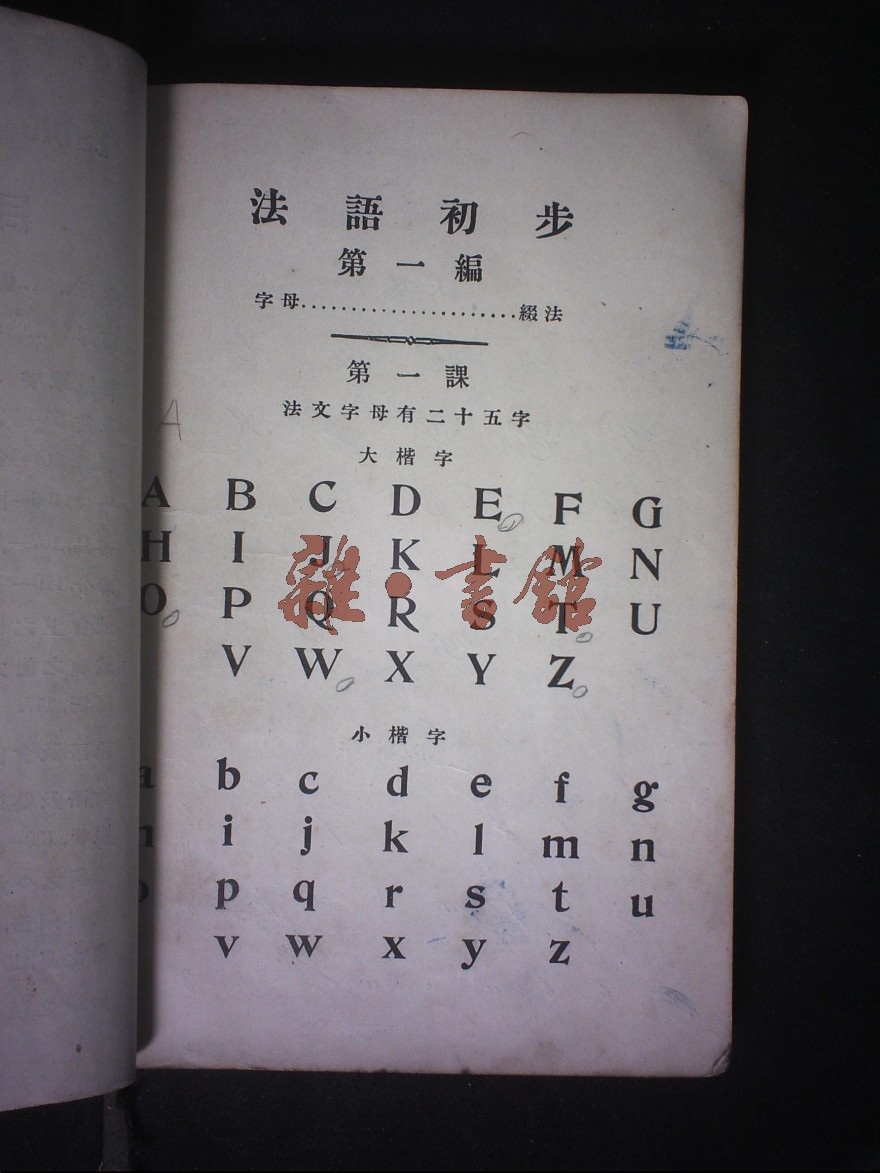 法語初步
第一編
字母......................綴法
第一課
法文字母有二十五字
大楷字
A B C D E F G
H I J K L M N
O P Q R S T U
V W X Y Z
小楷字
a b c d e f g
i j k l m n
p q r s t u
v w x y z
雜·書館
A